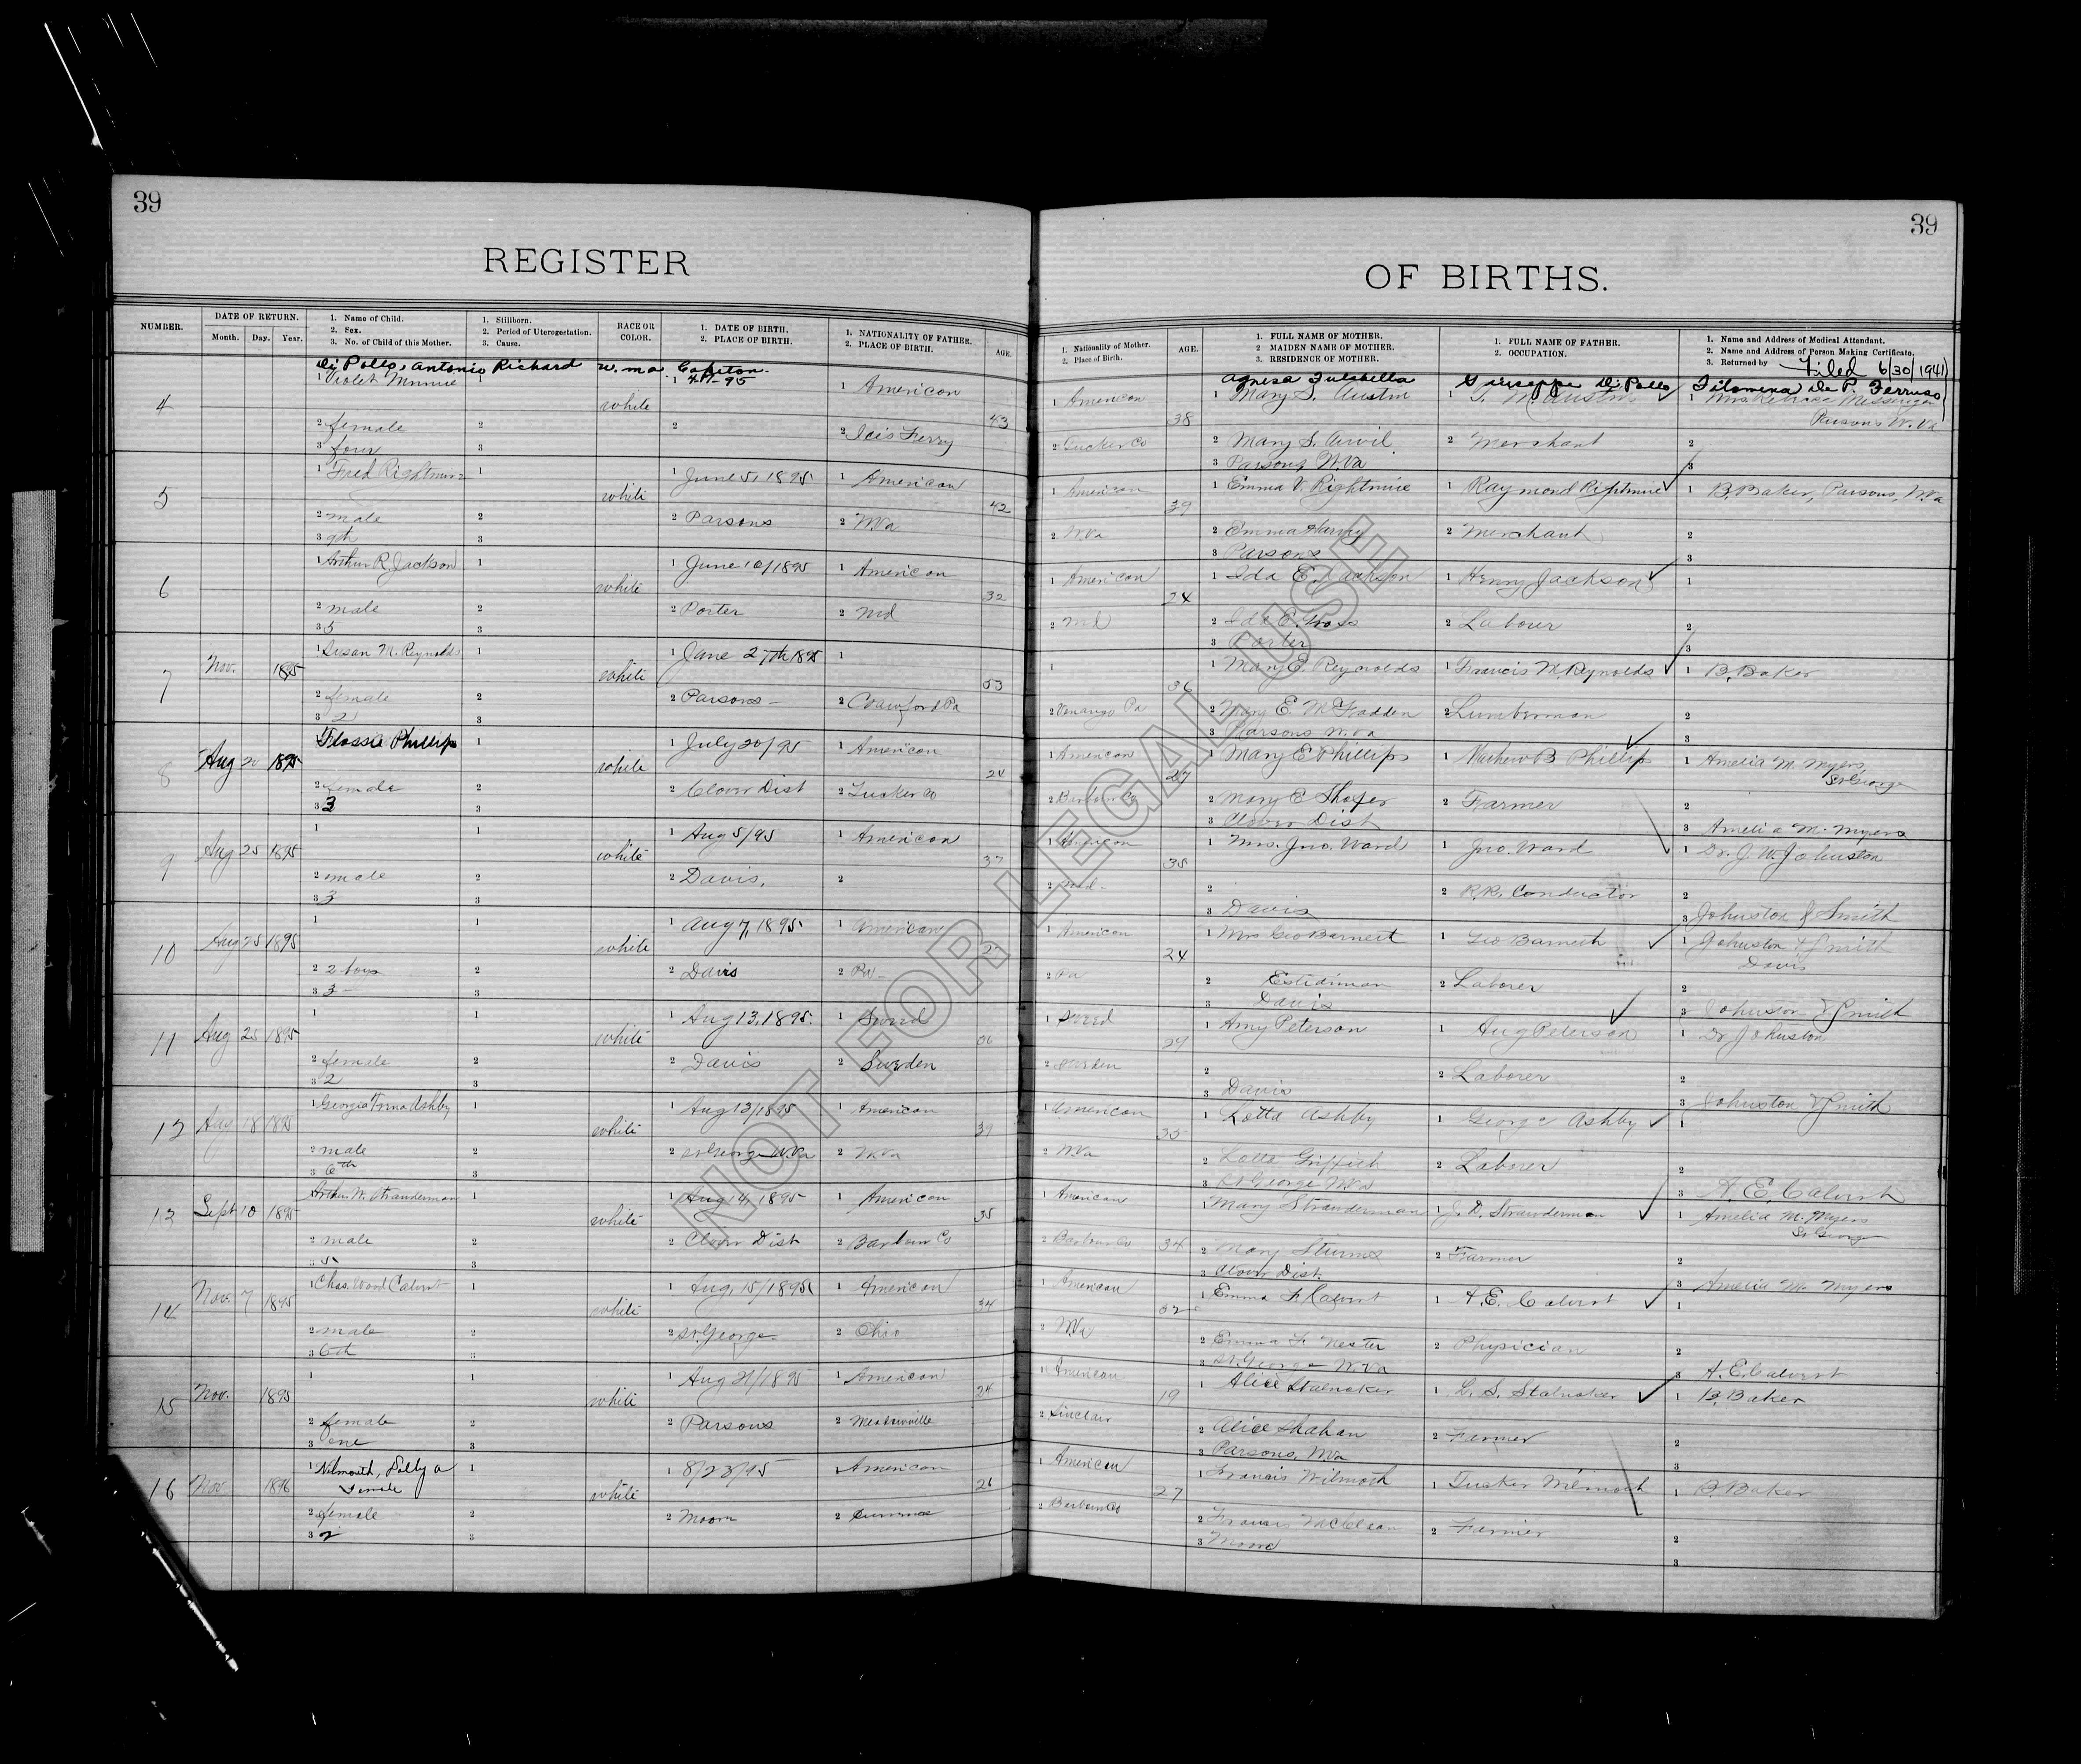 39
39
REGISTER
OF BIRTHS.
NUMBER.
DATE OF RETURN.
Month. Day. Year.
1. Name of Child.
2. Sex.
3. No. of Child of this Mother.
1. Stillborn.
2. Period of Uterogestation.
3. Cause.
RACE OR COLOR.
1. DATE OF BIRTH.
2. PLACE OF BIRTH.
1. NATIONALITY OF FATHER.
2. PLACE OF BIRTH.
AGE.
1. Nationality of Mother.
2. Place of Birth.
AGE.
1. FULL NAME OF MOTHER.
2 MAIDEN NAME OF MOTHER.
3. RESIDENCE OF MOTHER.
1. FULL NAME OF FATHER.
2. OCCUPATION.
1. Name and Address of Medical Attendant.
2. Name and Address of Person Making Certificate.
3. Returned by
Filed 6/30/1941
Di Pollo, Antonio Richard w. ma Coketon.
Giuseppe Di Pollo Filomena De P. Ferruso
4 1 Violet Minnie 1 white 1 American 43
1 American 38 1 Mary S. Austin 1 Austin 1 Mrs
Parsons W. Va
2 female 2 2 2 Ice's Ferry
2 Tucker Co 2 Mary S. 2 Merchant 2
3 four 3
3 Parsons, W.Va 3
5 1 Fred Rightmire 1 white 1 June 5, 1895 1 American 42
1 American 39 1 Emma V. Rightmire 1 Raymond Rightmire 1 B. Baker, Parsons, W.Va
2 male 2 2 Parsons 2 W.Va
2 W.Va 2 Emma Harvey 2 Merchant 2
3 9th 3
3 Parsons 3
6 1 Arthur R. Jackson 1 white 1 June 10/1895 1 American 32
1 American 24 1 Ida E. Jackson 1 Henry Jackson 1
2 male 2 2 Porter 2 Md
2 Md 2 Ida E. 2 Laborer 2
3 5 3
3 Porter 3
7 Nov. 1895 1 Susan M. Reynolds 1 white 1 June 27th 1895 1 53
1 36 1 Mary E. Reynolds 1 Francis M. Reynolds 1 B. Baker
2 female 2 2 Parsons - 2 Crawford Pa
2 Venango Pa 2 Mary E. McFadden 2 Lumberman 2
3 2 3
3 Parsons W.Va 3
8 Aug 20 1895 1 Flossie Phillips 1 white 1 July 20/95 1 American
1 American 27 1 Mary E Phillips 1 Mathew B Phillips 1 Amelia M. Myers
St George
2 female 2 2 Clover Dist 2 Tucker Co
2 Barbour Co 2 Mary E Shafer 2 Farmer 2
3 3 3
3 Clover Dist 3 Amelia M. Myers
9 Aug 25 1895 1 1 white 1 Aug 5/95 1 American 37
1 American 35 1 Mrs. Jno. Ward 1 Jno. Ward 1 Dr. J. W. Johnston
2 male 2 2 Davis, 2
2 Md - 2 2 R.R. Conductor 2
3 3 3
3 Davis 3 Johnston & Smith
10 Aug 25 1895 1 1 white 1 Aug 7, 1895 1 American
1 American 24 1 Mrs Geo Barnett 1 Geo Barnett 1 Johnston & Smith
Davis
2 2 boys 2 2 Davis 2 Pa -
2 Pa 2 2 Laborer 2
3 3 - 3
3 Davis 3 Johnston & Smith
11 Aug 25 1895 1 1 white 1 Aug 13, 1895. 1 Sweed 36
1 Sweed 1 Amy Peterson 1 Aug Peterson 1 Dr Johnston
2 female 2 2 Davis 2 Sweden
2 Sweden 2 2 Laborer 2
3 2 3
3 Davis 3 Johnston & Smith
12 Aug 18 1895 1 Georgia Ashby 1 white 1 Aug 13/1895 1 American 39
1 American 35 1 Lotta Ashby 1 George Ashby 1
2 male 2 2 St George W.Va 2 W.Va
2 W.Va 2 Lotta Griffith 2 Laborer 2
3 6th 3
3 St George W.Va 3 A. E. Calvert
13 Sept 10 1895 Arthur W. Strawderman 1 white 1 Aug 14, 1895 1 American 35
1 American 34 1 Mary Strawderman 1 J. D. Strawderman 1 Amelia M. Myers
St George
2 male 2 2 Clover Dist 2 Barbour Co
2 Barbour Co 2 Mary Sturms 2 Farmer 2
3 5 3
3 Clover Dist. 3 Amelia M. Myers
14 Nov. 7 1895 1 Chas. Wood Calvert 1 white 1 Aug. 15/1895 1 American 34
1 American 32 1 Emma F. Calvert 1 A. E. Calvert 1
2 male 2 2 St. George. 2 Ohio
2 W.Va 2 Emma F. Nester 2 Physician 2
3 6th 3
3 St. George W.Va 3 A. E. Calvert
15 Nov. 1895 1 1 white 1 Aug 21/1895 1 American 24
1 American 19 1 Alice Stalnaker 1 L. S. Stalnaker 1 B. Baker
2 female 2 2 Parsons 2 Meadowville
2 Sinclair 2 Alice Shahan 2 Farmer 2
3 one 3
3 Parsons, W.Va 3
16 Nov. 1896 1 Wilmouth, Dolly a 1 white 1 8/23/95 American 26
Female
1 American 27 1 Francis Wilmoth 1 Tucker Wilmouth 1 B. Baker
2 female 2 2 Moore 2
2 Barbour Co 2 Francis McClean 2 Farmer 2
3 2 3
3 Moore 3
NOT FOR LEGAL USE